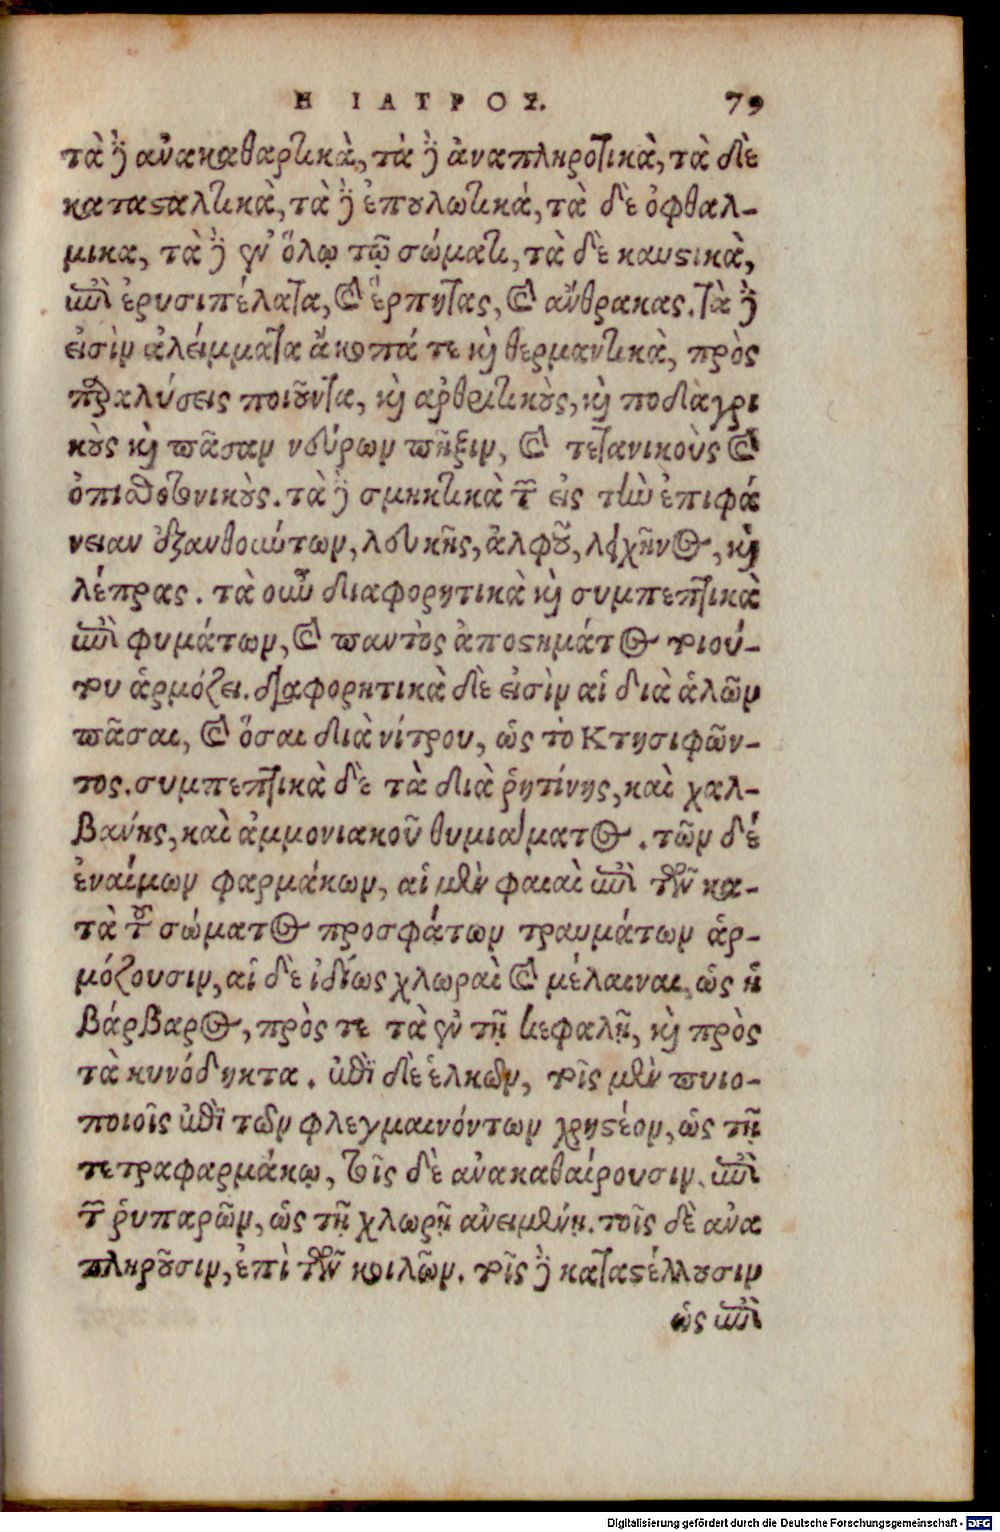 Η ΙΑΤΡΟΣ. 79
τὰ δὲ ἀνακαθαρτικὰ, τὰ δὲ ἀναπληροτικὰ, τὰ δὲ
κατασαλτικὰ, τὰ δὲ ἐπουλωτικὰ, τὰ δὲ ὀφθαλ-
μικα, τὰ δὲ ἐν ὅλῳ τῷ σώματι, τὰ δὲ καυστικὰ,
ἐπὶ ἐρυσιπέλατα, καὶ ἕρπητας, καὶ ἄνθρακας. τὰ δὲ
εἰσὶν ἀλείμματα ἄκοπά τε καὶ θερμαντικὰ, πρὸς
παραλύσεις ποιοῦντα, καὶ ἀρθριτικοὺς, καὶ ποδαγρι
κοὺς καὶ πᾶσαν νεύρων πῆξιν, καὶ τετανικοὺς καὶ
ὀπισθοτονικοὺς. τὰ δὲ σμηκτικὰ τῶν εἰς τὴν ἐπιφά
νειαν ἐξανθούντων, λευκῆς, ἀλφοῦ, λειχῆνος, καὶ
λέπρας. τὰ οὖν διαφορητικὰ καὶ συμπεπτικὰ
ἐπὶ φυμάτων, καὶ παντὸς ἀποστημάτος τοιού-
του ἁρμόζει. διαφορητικὰ δὲ εἰσὶν αἱ διὰ ἁλῶν
πᾶσαι, καὶ ὅσαι διὰ νίτρου, ὡς τὸ Κτησιφῶν-
τος. συμπεπτικὰ δὲ τὰ διὰ ῥητίνης, καὶ χαλ-
βάνης, καὶ ἀμμονιακοῦ θυμιάματος. τῶν δέ
ἐναίμων φαρμάκων, αἱ μὲν φαιαὶ ἐπὶ τῶν κα-
τὰ τοῦ σώματος προσφάτων τραυμάτων ἁρ-
μόζουσιν, αἱ δὲ ἰδίως χλωραὶ καὶ μέλαιναι, ὡς ἡ
βάρβαρος, πρὸς τε τὰ ἐν τῇ κεφαλῇ, καὶ πρὸς
τὰ κυνόδηκτα. ἐπὶ δὲ ἑλκῶν, τοῖς μὲν πυιο-
ποιοῖς ἐπὶ τῶν φλεγμαινόντων χρηστέον, ὡς τῇ
τετραφαρμάκῳ, τοῖς δὲ ἀνακαθαίρουσιν, ἐπὶ
τῶν ῥυπαρῶν, ὡς τῇ χλωρῇ ἀνειμένῃ. τοῖς δὲ ἀνα
πληροῦσιν, ἐπὶ τῶν κοιλῶν. τοῖς δὲ καταστέλλουσιν
ὡς ἐπὶ
Digitalisierung gefördert durch die Deutsche Forschungsgemeinschaft - DFG